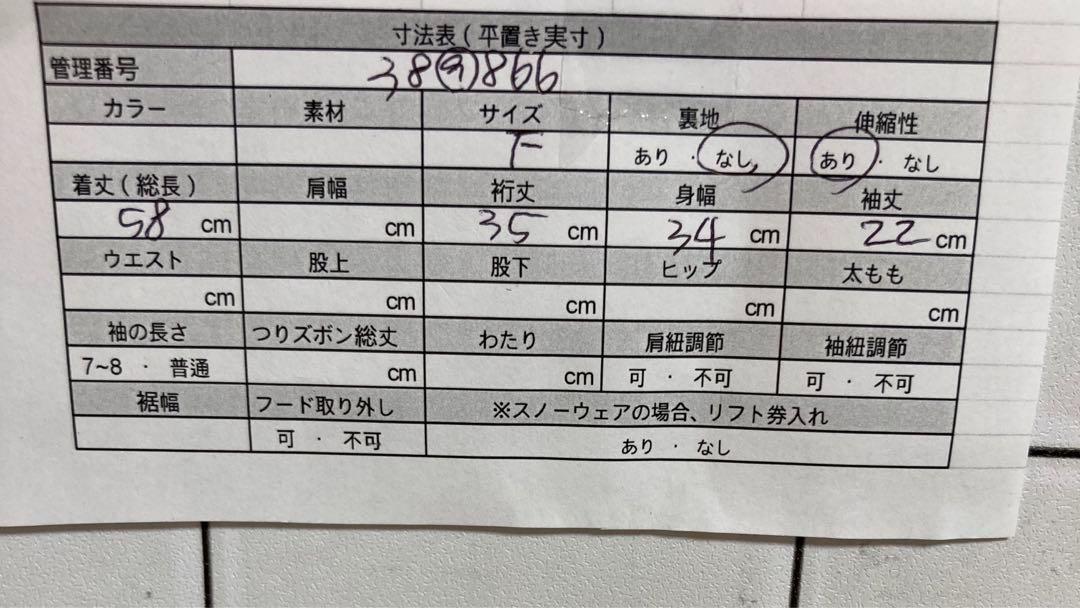 寸法表(平置き実寸)
管理番号 38㋐866
カラー 素材 サイズ 裏地 伸縮性
F あり ・ なし あり ・ なし
着丈(総長) 肩幅 裄丈 身幅 袖丈
58 cm cm 35 cm 34 cm 22 cm
ウエスト 股上 股下 ヒップ 太もも
cm cm cm cm cm
袖の長さ つりズボン総丈 わたり 肩紐調節 袖紐調節
7~8 ・ 普通 cm cm 可 ・ 不可 可 ・ 不可
裾幅 フード取り外し ※スノーウェアの場合、リフト券入れ
可 ・ 不可 あり ・ なし